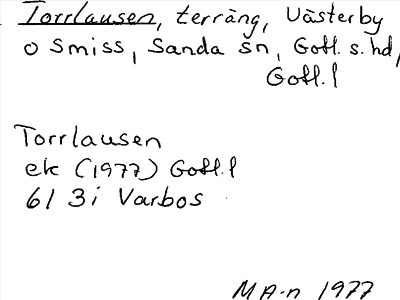 Torrlausen, terräng, Västerby
o Smiss, Sanda sn, Gotl. s. hd,
Gotl. l
Torrlausen
ek (1977) Gotl. l
6I 3i Varbos
MA-n 1977